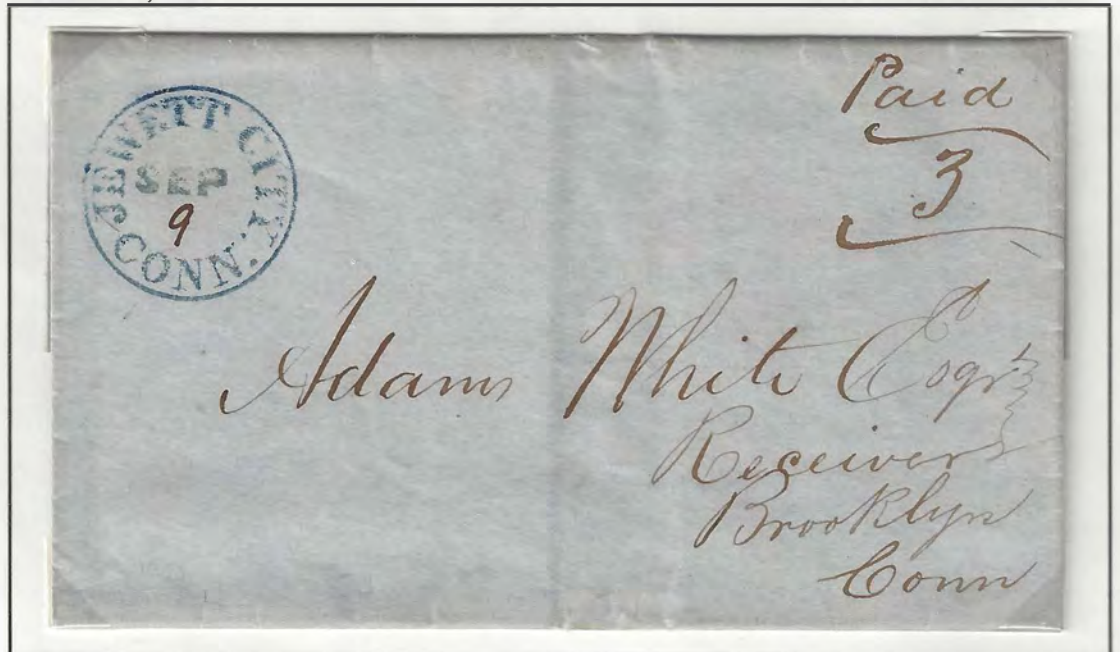 JEWETT CITY.
SEP
9
CONN.
Paid
3
Adams White Esqr
Receiver
Brooklyn
Conn